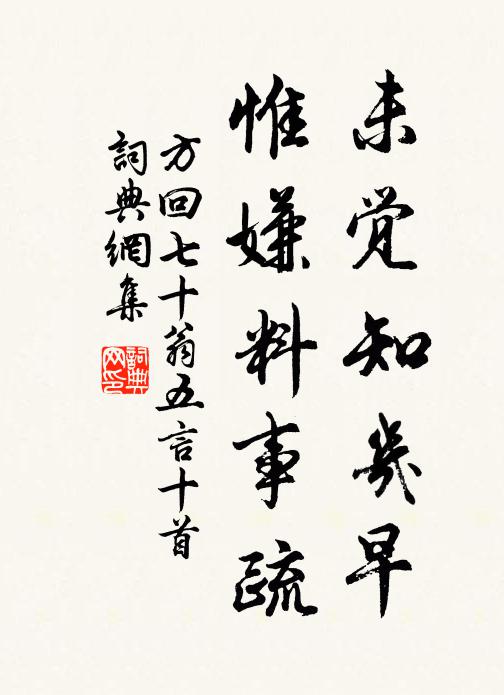 未觉知几早
惟嫌料事疏
方回七十翁五言十首
詞典網集
詞典网印